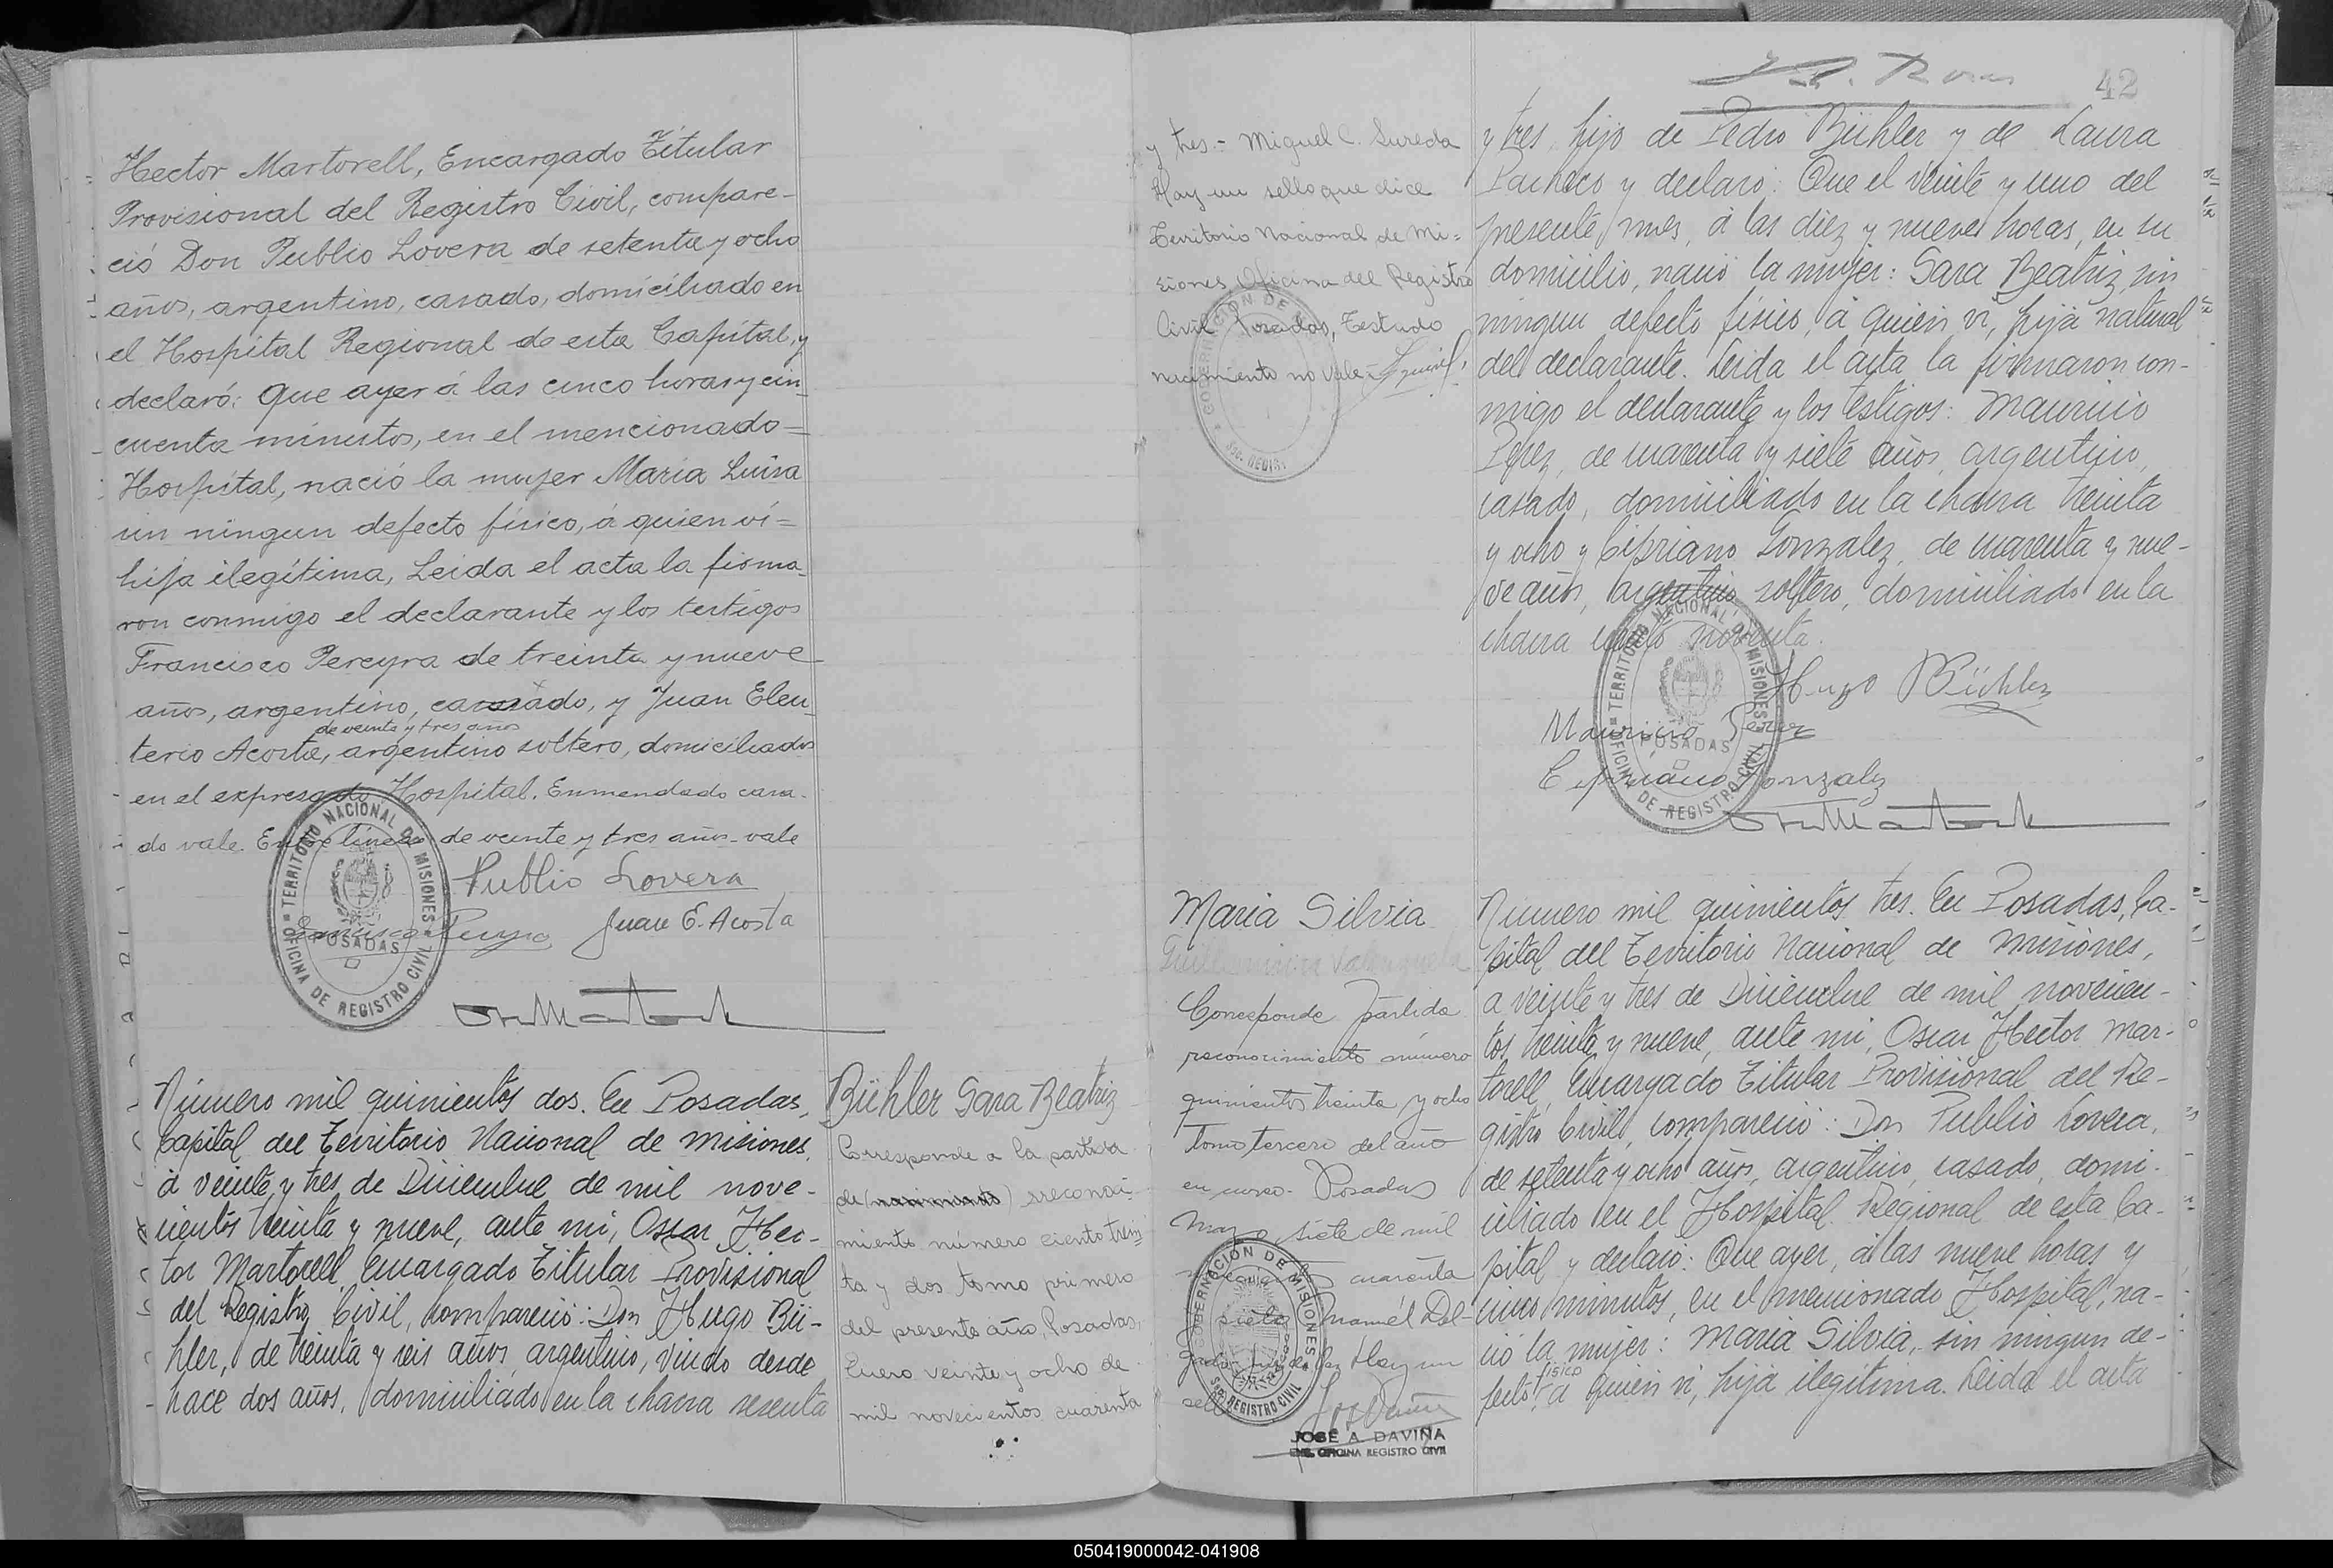 Hector Martorell, Encargado Titular
Provisional del Registro Civil, compare-
ció Don Publio Lovera de setenta y ocho
años, argentino, casado, domiciliado en
el Hospital Regional de esta Capital, y
declaró: Que ayer á las cinco horas y cin
cuenta minutos, en el mencionado=
Hospital, nació la mujer Maria Luisa
sin ningun defecto físico, á quien ví=
hija ilegítima, Leida el acta la firma
ron conmigo el declarante y los testigos
Francisco Pereyra de treinta y nueve
años, argentino, casado, y Juan Eleu
de veinte y tres años
terio Acosta, argentino soltero, domiciliados
en el expresado Hospital. Enmendado casa-
do vale. Entre lineas de veinte y tres años-vale
Publio Lovera
Francisco Pereyra Juan E. Acosta
TERRITORIO NACIONAL DE MISIONES
POSADAS
OFICINA DE REGISTRO CIVIL
Número mil quinientos dos. En Posadas,
Capital del Territorio Nacional de Misiones,
á veinte y tres de Diciembre de mil nove-
cientos treinta y nueve, ante mi, Oscar Hec-
tor Martorell, Encargado Titular Provisional
del Registro Civil, compareció: Don Hugo Bü-
hler, de treinta y seis años argentino, viudo desde
hace dos años, domiciliado en la chacra sesenta
Bühler Sara Beatriz
Corresponde a la partida
de (nacimiento) reconoci-
miento número ciento trein
ta y dos tomo primero
del presente año, Posadas,
Enero veinte y ocho de
mil novecientos cuarenta
42
y tres.- Miguel C. Sureda
Hay un sello que dice
Territorio Nacional de Mi=
siones Oficina del Registro
Civil Posadas, Testado
nacimiento no vale
y tres, hijo de Pedro Bühler y de Laura
Pacheco y declaró: Que el veinte y uno del
presente mes, á las diez y nueve horas, en su
domicilio, nació la mujer: Sara Beatriz, sin
ningun defecto físico, á quien ví, hija natural
del declarante. Leida el acta la firmaron con-
migo el declarante y los testigos: Mauricio
Perez, de cuarenta y siete años, argentino,
casado, domiciliado en la chacra treinta
y ocho y Cipriano Gonzalez, de cuarenta y nue-
ve años, argentino, soltero, domiciliado en la
chacra ciento noventa.
Hugo Bühler
Mauricio Perez
Cipriano Gonzalez
TERRITORIO NACIONAL DE MISIONES
POSADAS
OFICINA DE REGISTRO CIVIL
Maria Silvia
Corresponde partida
reconocimiento número
quinientos treinta y ocho
Tomo tercero del año
en curso. Posadas
Mayo siete de mil
novecientos cuarenta
siete Manuel Del-
Hay un
sello
GOBERNACIÓN DE MISIONES
REGISTRO CIVIL
JOSÉ A. DAVIÑA
OFICINA REGISTRO CIVIL
Número mil quinientos tres. En Posadas, Ca-
pital del Territorio Nacional de Misiones,
a veinte y tres de Diciembre de mil novecien-
tos treinta y nueve, ante mi, Oscar Hector Mar-
torell, Encargado Titular Provisional del Re-
gistro Civil, compareció: Don Publio Lovera,
de setenta y ocho años, argentino, casado, domi-
ciliado en el Hospital Regional de esta Ca-
pital y declaró: Que ayer, á las nueve horas y
cinco minutos, en el mencionado Hospital, na-
ció la mujer: Maria Silvia, sin ningun de-
fisico
fecto, á quien ví, hija ilegítima. Leida el acta
050419000042-041908